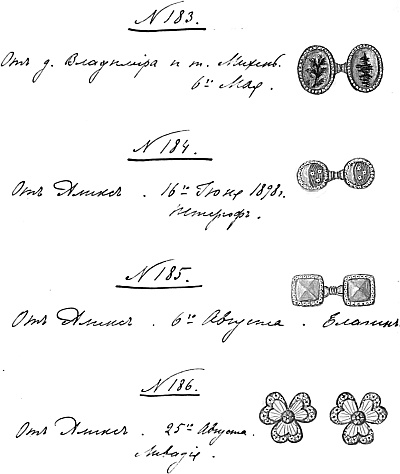 N 183.
Отъ д. Владиміра и т. Михенъ.
6го Мая.
N 184.
Отъ Аликсъ. 16го Іюня 1898г.
Петергофъ.
N 185.
Отъ Аликсъ. 6го Августа. Елагинъ.
N 186.
Отъ Аликсъ. 25го Августа.
Ливадія.